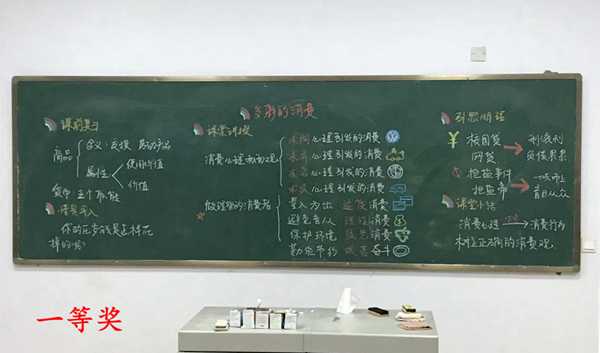 多彩的消费
课前复习
商品
含义:交换 劳动产品
属性
使用价值
价值
货币:五个职能
情景导入
你的压岁钱是怎样花
掉的呢?
课堂讲授
消费心理面面观
心理引发的消费
心理引发的消费
心理引发的消费
心理引发的消费
做理智的消费者
量入为出 适度消费
避免盲从 理性消费
保护环境 绿色消费
勤俭节约 艰苦奋斗
¥ 校园贷
网贷
利滚利
抢盐事件
抢盐帝
一哄而上
盲目从众
课堂小结
消费心理 消费行为
树立正确的消费观。
一等奖